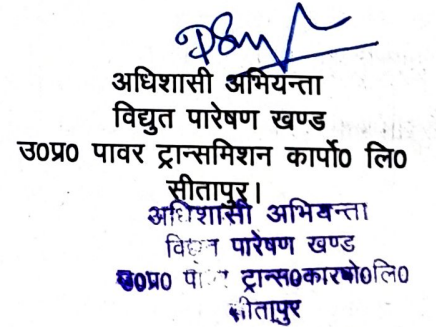 अधिशासी अभियन्ता
विद्युत पारेषण खण्ड
उ०प्र० पावर ट्रान्समिशन कार्पो० लि०
सीतापुर।
अधिशासी अभियन्ता
विद्युत पारेषण खण्ड
उ०प्र० ट्रान्स०कारपो०लि०
सीतापुर